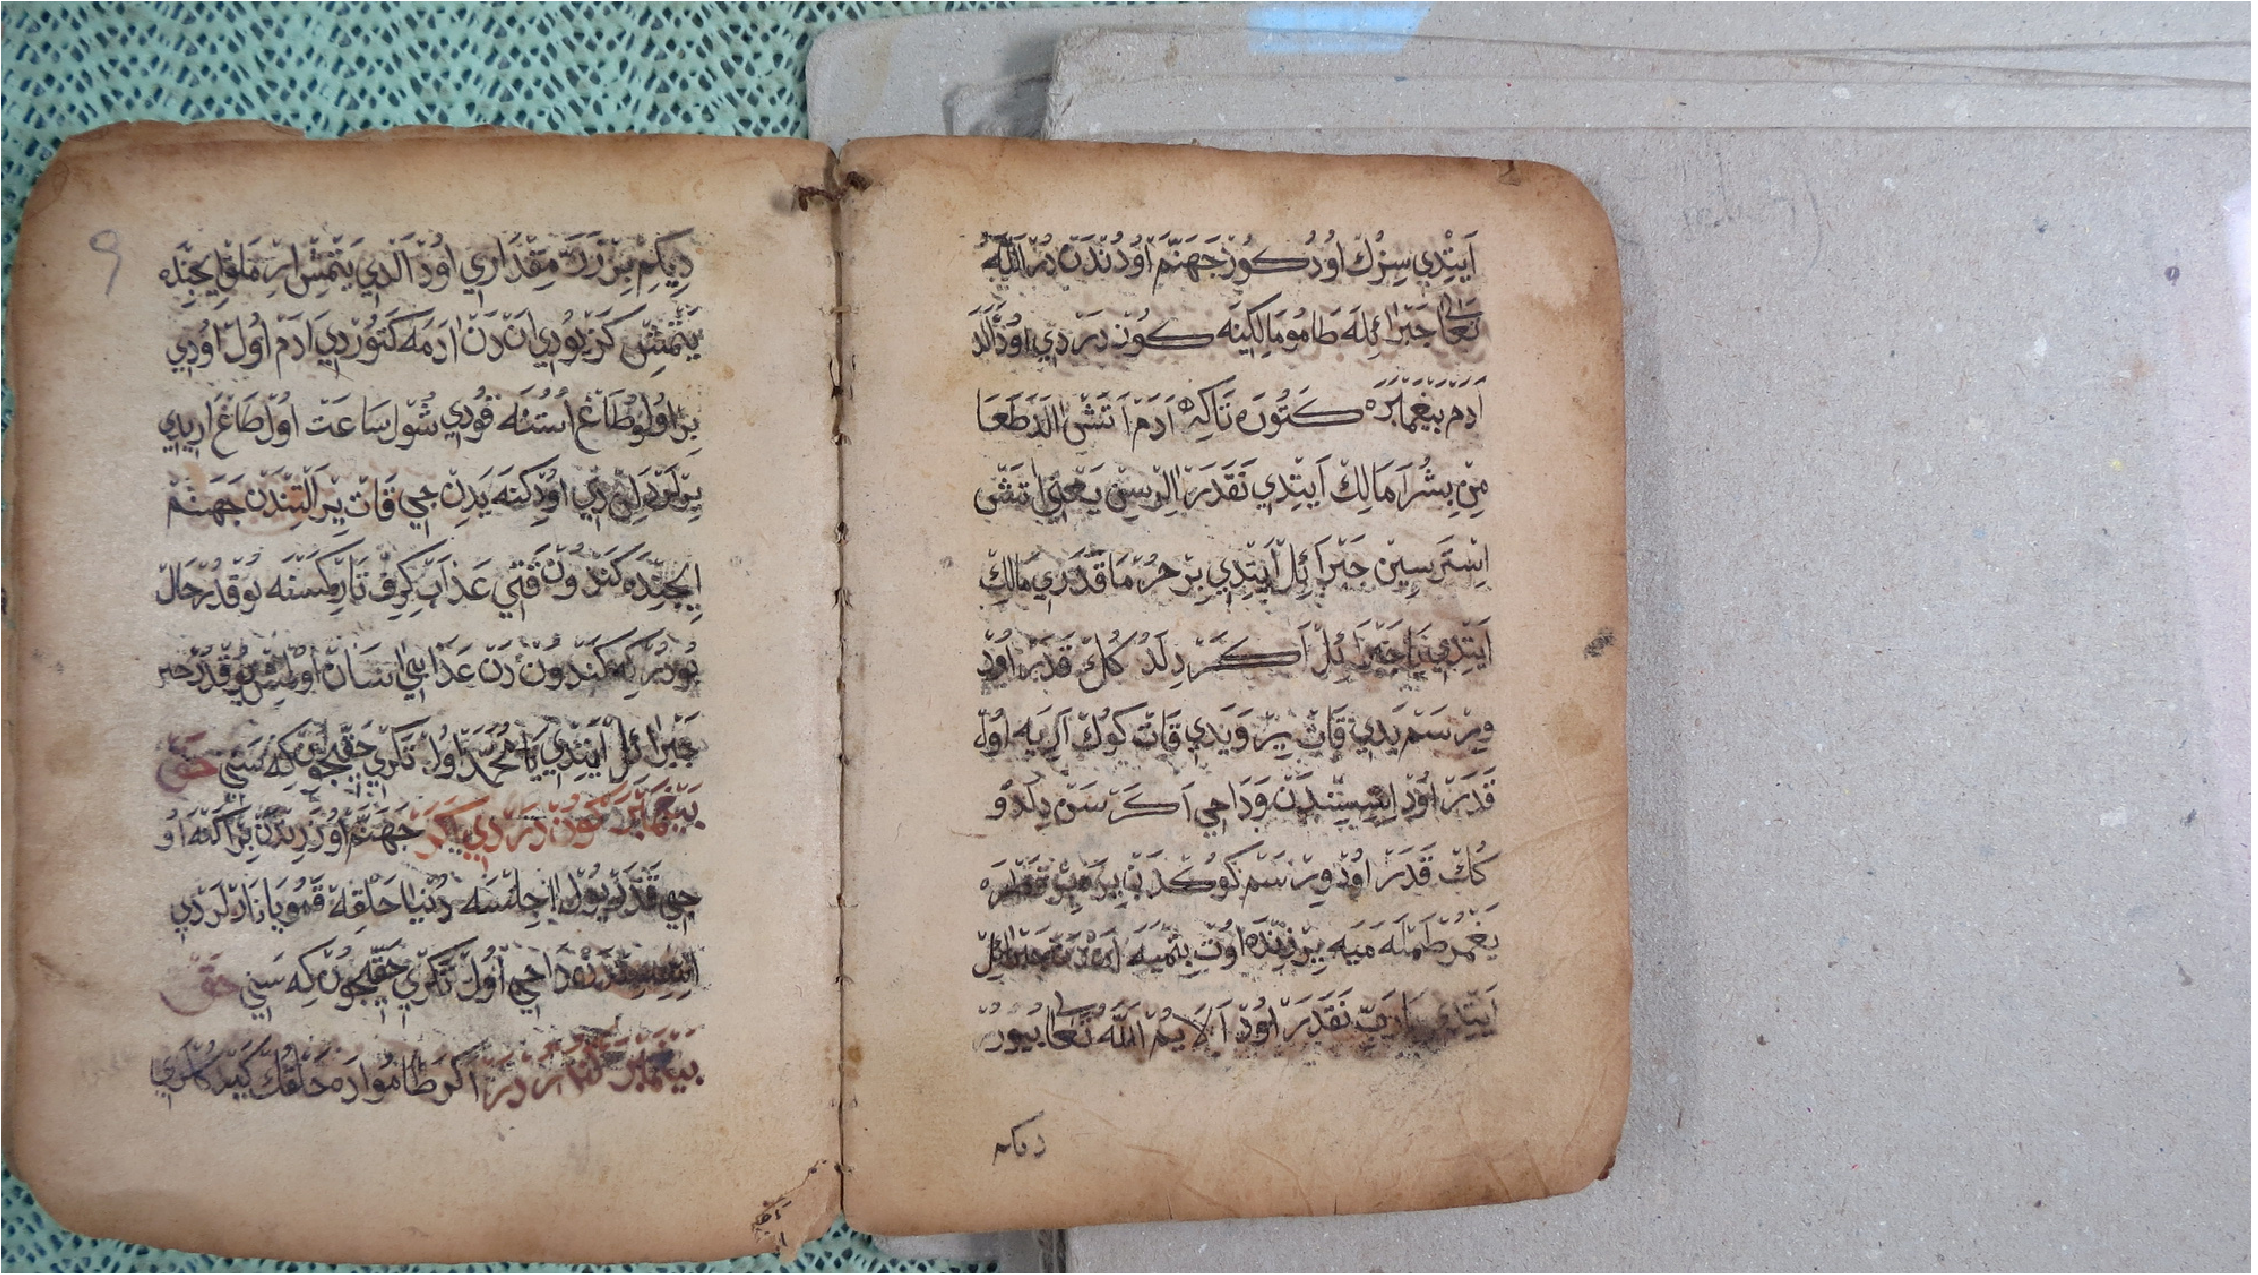 اَيْتِدِي سِزُكْ اوُدُكوُزْ جَهَنَّمْ اوُدُنْدَنْ دُرْ اَللّٰهُ
تَعَالٰى جَبْرَائِلَه طَامُو مَالِكِينَه كوُنْدَرْدِي اوُدْ اَلَدْ
اَدَمْ بَيْغَمْبَرَه كَتُورَه تَاكِه اَدَمْ اَتَشْ اَلَدْ طَعَا
مِنْ بِشُرَ مَالِكْ اَيْتِدِي نَقَدَرْ اَلِرْسِنْ يَعْنِي اَتَشْ
اِسْتَرْسِينْ جَبْرَائِلْ اَيْتِدِي بِرْ حُرْمَا قَدَرِي مَالِكْ
اَيْتِدِي يَا جَبْرَائِلْ اَكَرْ دِلَدُكُكْ قَدَرْ اوُدْ
وِيرْسَمْ يَدِي قَاتْ يِرْ وَيَدِي قَاتْ كوُكْ اَرِيَه اوُلْ
قَدَرْ اوُدْ اِسِّسِنْدَنْ وَدَاخِي اَكَرْ سَنْ دِلَدُو
كُكْ قَدَرْ اوُدْ وِيرْسَمْ كوُكْدَنْ يِيرَه بِرْ قَطْرَه
يَغْمُرْ طَمْلَه مَيَه يِيرْ يُزِنْدَه اوُتْ بِتْمَيَه جَبْرَائِلْ
اَيْتِدِي يَارَبِّ نَقَدَرْ اوُدْ اَلَايُمْ اَللّٰهُ تَعَالٰى بُيوُرْ
دِيكِمْ
دِيكِمْ بِرْ زَرَّه مِقْدَارِي اوُدْ اَلْدِي يَتْمِشْ اِرْمَاقْ اِيجِنْدَه
يَتْمِشْ كَزْ يوُدِي اَنْدَنْ اَدَمَه كَتوُرْدِي اَدَمْ اوُلْ اوُدِي
بِرْ اوُلُو طَاغْ اُسْتُنَه قوُدِي شوُلْ سَاعَتْ اوُلْ طَاغْ اَرِيدِي
يِرْلَرْ دَلِنْدِي اوُدْ كِنَه يَدِنْجِي قَاتْ يِرْ اَلْتِنْدَنْ جَهَنَّمْ
اِيجِنْدَه كَنْدوُنْ قَتِي عَذَابْ كِرِفْتَارْ كِمْسَنَه يوُقْدُرْ حَالْ
بوُدُرْ كِه كَنْدوُنْدَنْ عَذَابِي اَسَانْ اوُلْمِشْ يوُقْدُرْ خبر
جَبْرَائِلْ اَيْتِدِي يَا مُحَمَّدْ اوُلْ تَكْرِي حَقِّيجوُنْ كِه سَنِي حَقْ
بَيْغَمْبَرْ كوُنْدَرْدِي اَكَرْ جَهَنَّمْ اوُزَرِنْدَنْ بِرْ اِكْنَه اوُ
جِي قَدَرْ يوُلْ اَجِلْسَه دُنْيَا خَلْقِه قَمُو يَانَارْلَرْدِي
اِسِّسِنْدَنْ وَدَاخِي اوُلْ تَكْرِي حَقِّيجوُنْ كِه سَنِي حَقْ
بَيْغَمْبَرْ اَكَرْ طَامُوا دَه خَلْقُكْ كَيْدُكْلَرِي